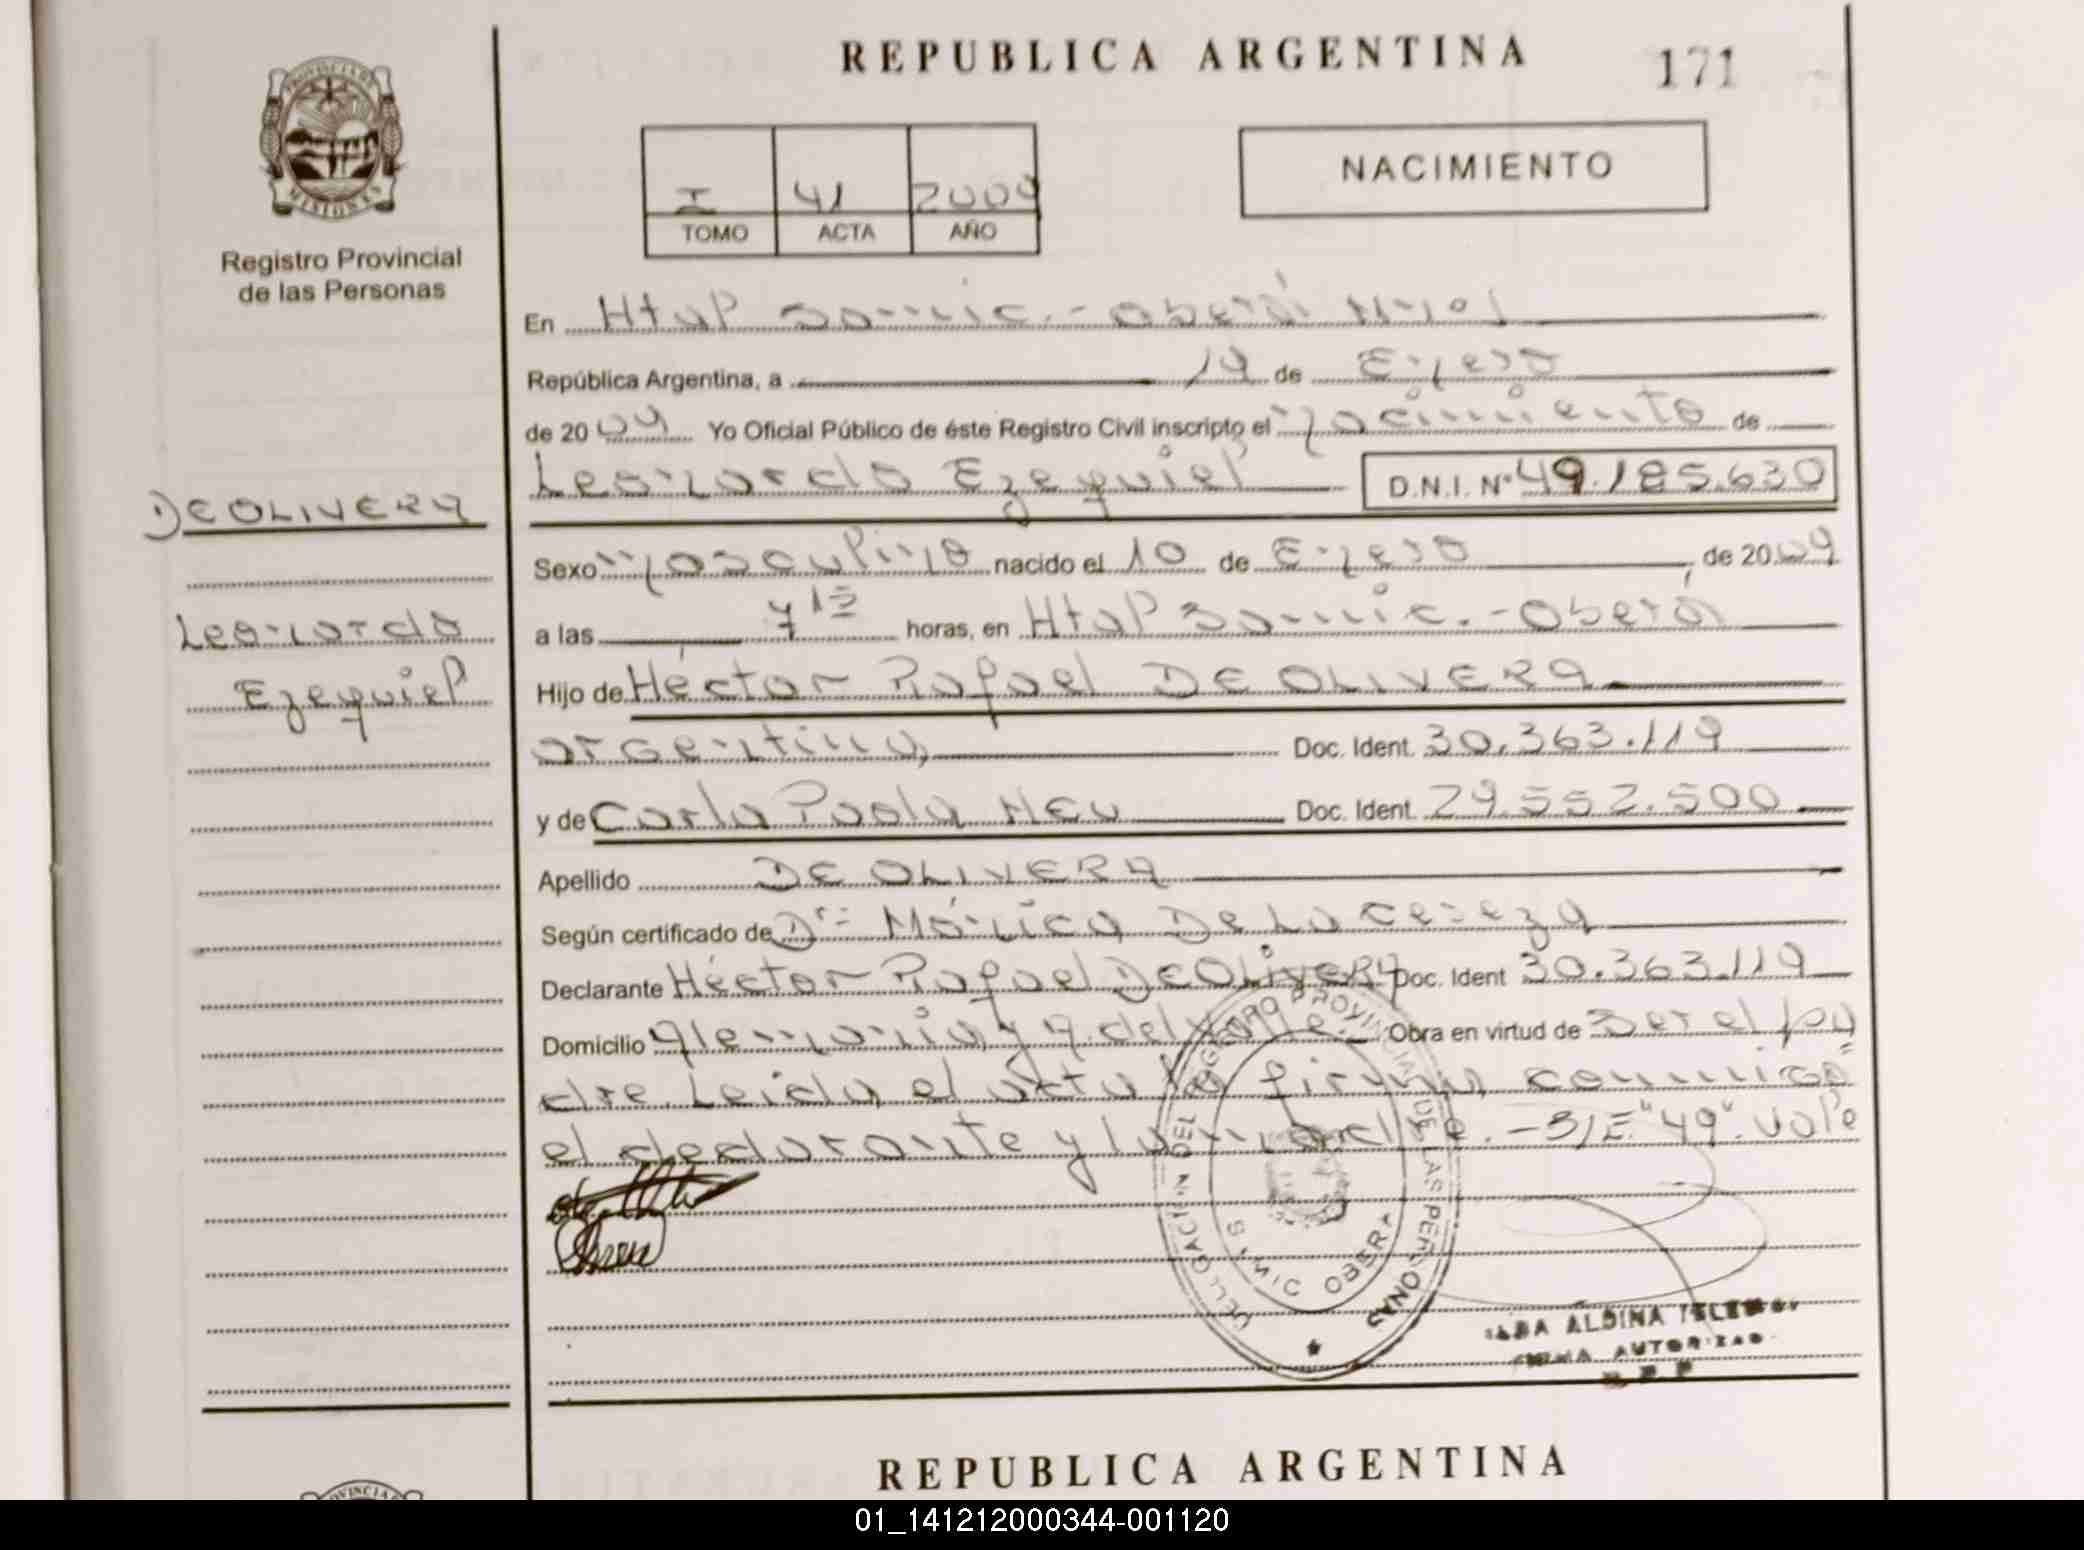 REPUBLICA ARGENTINA
171
PROVINCIA DE
MISIONES
Registro Provincial
de las Personas
I 41 2009
TOMO ACTA AÑO
NACIMIENTO
En Htal Samic. - Oberá Mnes
República Argentina, a 19 de Enero
de 2009 Yo Oficial Público de éste Registro Civil inscripto el nacimiento de
Leonardo Ezequiel D.N.I. Nº 49.185.630
DE OLIVERA
Leonardo
Ezequiel
Sexo masculino nacido el 10 de Enero, de 2009
a las horas, en Htal Samic. - Oberá
Hijo de Héctor Rafael DE OLIVERA
argentino, Doc. Ident. 30.363.119
y de Carla Paola NEU Doc. Ident. 29.552.500
Apellido DE OLIVERA
Según certificado de Dra Mónica De La
Declarante Héctor Rafael DE OLIVERA Doc. Ident 30.363.119
Domicilio Alemania y A. del Valle. Obra en virtud de Ser el pa
dre. Leída el acta la firman, conmigo
el declarante y la madre. - S/E "49" Vale
DELEGACION DEL REGISTRO PROVINCIAL DE LAS PERSONAS
SAMIC OBERA
ALBA ALBINA
FIRMA AUTORIZADA
REPUBLICA ARGENTINA
PROVINCIA
01_141212000344-001120